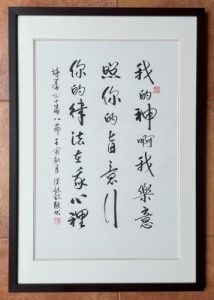 我的神啊我樂意
照你的旨意行
你的律法在我心裡
詩篇四十篇八節